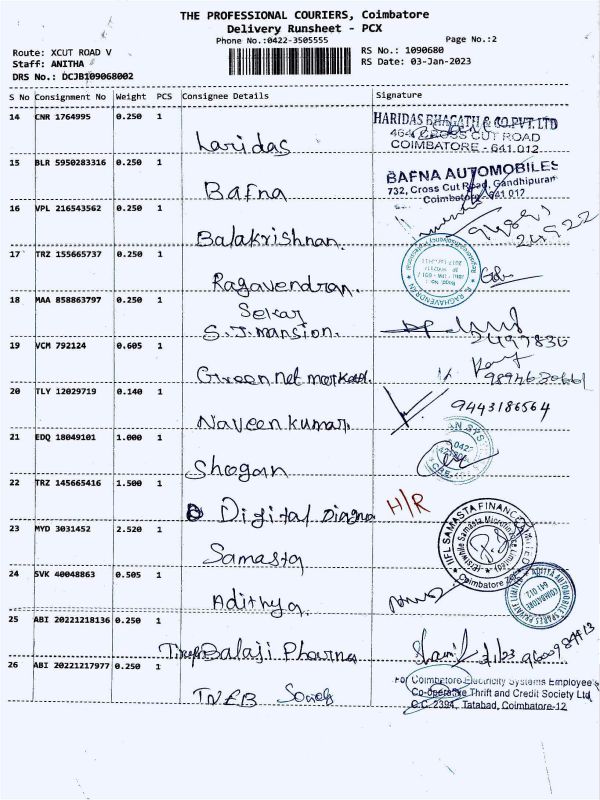 THE PROFESSIONAL COURIERS, Coimbatore
Delivery Runsheet - PCX
Phone No.:0422-3505555 Page No.:2
Route: XCUT ROAD V RS No.: 1090680
Staff: ANITHA RS Date: 03-Jan-2023
DRS No.: DCJB109068002
S No Consignment No Weight PCS Consignee Details Signature
14 CNR 1764995 0.250 1
Haridas
HARIDAS BHAGATH & CO.PVT. LTD
464, CROSS CUT ROAD
COIMBATORE - 641 012
15 BLR 5950283316 0.250 1
Bafna
BAFNA AUTOMOBILES
732, Cross Cut Road, Gandhipuram
Coimbatore - 641 012
16 VPL 216543562 0.250 1
Balakrishnan.
17 TRZ 155665737 0.250 1
Ragavendran.
R. RAGHAVENDRAN
18 MAA 858863797 0.250 1
Sekar
S.J. mansion.
19 VCM 792124 0.605 1
Green net
20 TLY 12029719 0.140 1
Naveen kumar.
9443186564
21 EDQ 18049101 1.000 1
Shogan
22 TRZ 145665416 1.500 1
Digital Diagno H/R
23 MYD 3031452 2.520 1
Samasta
IIFL SAMASTA FINANCE
(Erstwhile Samasta Microfinance Limited)
Coimbatore
24 SVK 40048863 0.505 1
Adithya.
ADITYA AUTOMOBILE SPARES PRIVATE LIMITED
COIMBATORE
641 012
25 ABI 20221218136 0.250 1
Balaji Pharma
26 ABI 20221217977 0.250 1
TNEB
For Coimbatore Electricity Systems Employee's
Co-operative Thrift and Credit Society Ltd
C.C. 2394, Tatabad, Coimbatore-12